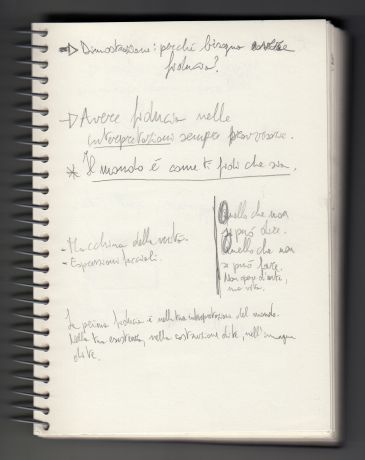 → Dimostrazione: perché bisogna avere
fiducia?
→ Avere fiducia nelle
interpretazioni sempre provvisorie.
* Il mondo è come ti fidi che sia.
- Macchina della
- Espressioni facciali.
Quello che non
si può dire.
Quello che non
si può fare.
Non opere d'arte,
ma vita.
La prima fiducia è nella tua interpretazione del mondo.
Nella tua esistenza, nella costruzione di te, nell'immagine
di te.